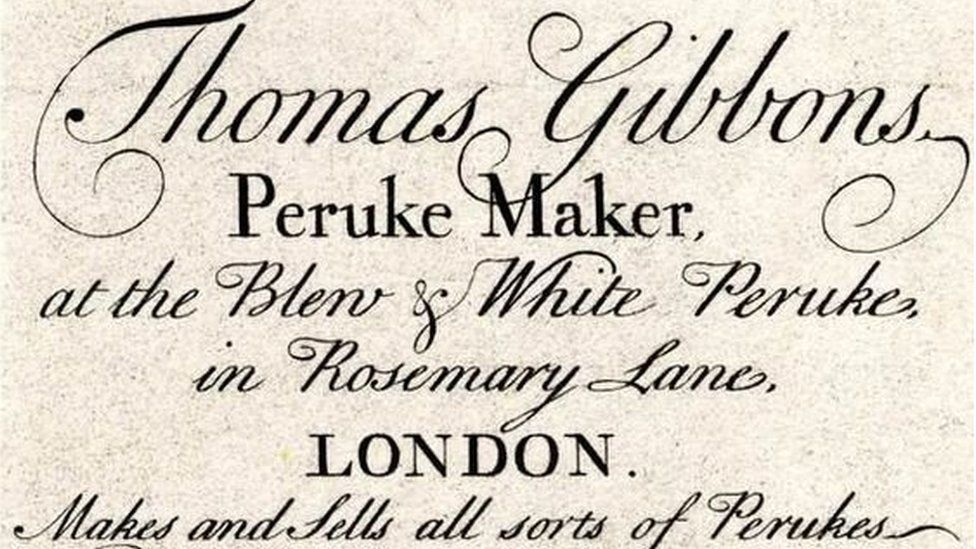 Thomas Gibbons,
Peruke Maker,
at the Blew & White Peruke,
in Rosemary Lane,
LONDON.
Makes and Sells all sorts of Perukes